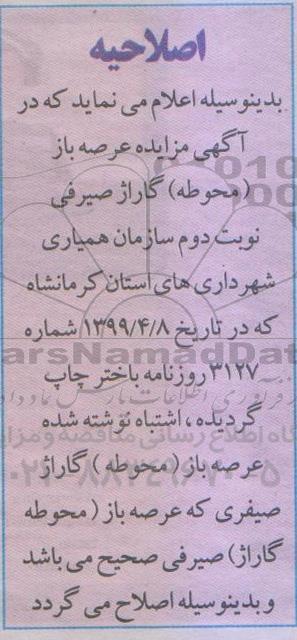 اصلاحیه
بدینوسیله اعلام می نماید که در
آگهی مزایده عرصه باز
(محوطه) گاراژ صیرفی
نوبت دوم سازمان همیاری
شهرداری های استان کرمانشاه
که در تاریخ ۱۳۹۹/۴/۸ شماره
۳۱۲۷ روزنامه باختر چاپ
گردیده ، اشتباه نوشته شده
عرصه باز ( محوطه ) گاراژ
صیفری که عرصه باز ( محوطه
گاراژ) صیرفی صحیح می باشد
و بدینوسیله اصلاح می گردد